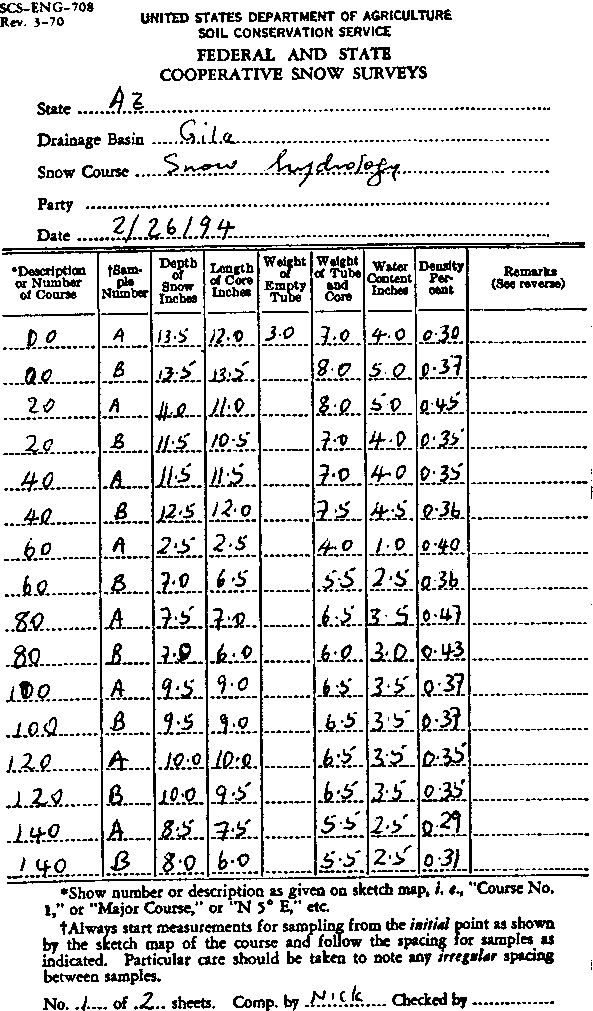 SCS-ENG-708
Rev. 3-70
UNITED STATES DEPARTMENT OF AGRICULTURE
SOIL CONSERVATION SERVICE
FEDERAL AND STATE
COOPERATIVE SNOW SURVEYS
State AZ
Drainage Basin Gila
Snow Course Snow hydrology
Party
Date 2/26/94
*Description or Number of Course †Sample Number Depth of Snow Inches Length of Core Inches Weight of Empty Tube Weight of Tube and Core Water Content Inches Density Per-cent Remarks (See reverse)
00 A 13.5 12.0 3.0 7.0 4.0 0.30
00 B 13.5 13.5 8.0 5.0 0.37
20 A 11.0 11.0 8.0 5.0 0.45
20 B 11.5 10.5 7.0 4.0 0.35
40 A 11.5 11.5 7.0 4.0 0.35
40 B 12.5 12.0 7.5 4.5 0.36
60 A 2.5 2.5 4.0 1.0 0.40
60 B 7.0 6.5 5.5 2.5 0.36
80 A 7.5 7.0 6.5 3.5 0.47
80 B 7.0 6.0 6.0 3.0 0.43
100 A 9.5 9.0 6.5 3.5 0.37
100 B 9.5 9.0 6.5 3.5 0.37
120 A 10.0 10.0 6.5 3.5 0.35
120 B 10.0 9.5 6.5 3.5 0.35
140 A 8.5 7.5 5.5 2.5 0.29
140 B 8.0 6.0 5.5 2.5 0.31
*Show number or description as given on sketch map, i. e., "Course No.
1," or "Major Course," or "N 5° E," etc.
†Always start measurements for sampling from the initial point as shown
by the sketch map of the course and follow the spacing for samples as
indicated. Particular care should be taken to note any irregular spacing
between samples.
No. 1 of 2 sheets. Comp. by Nick Checked by